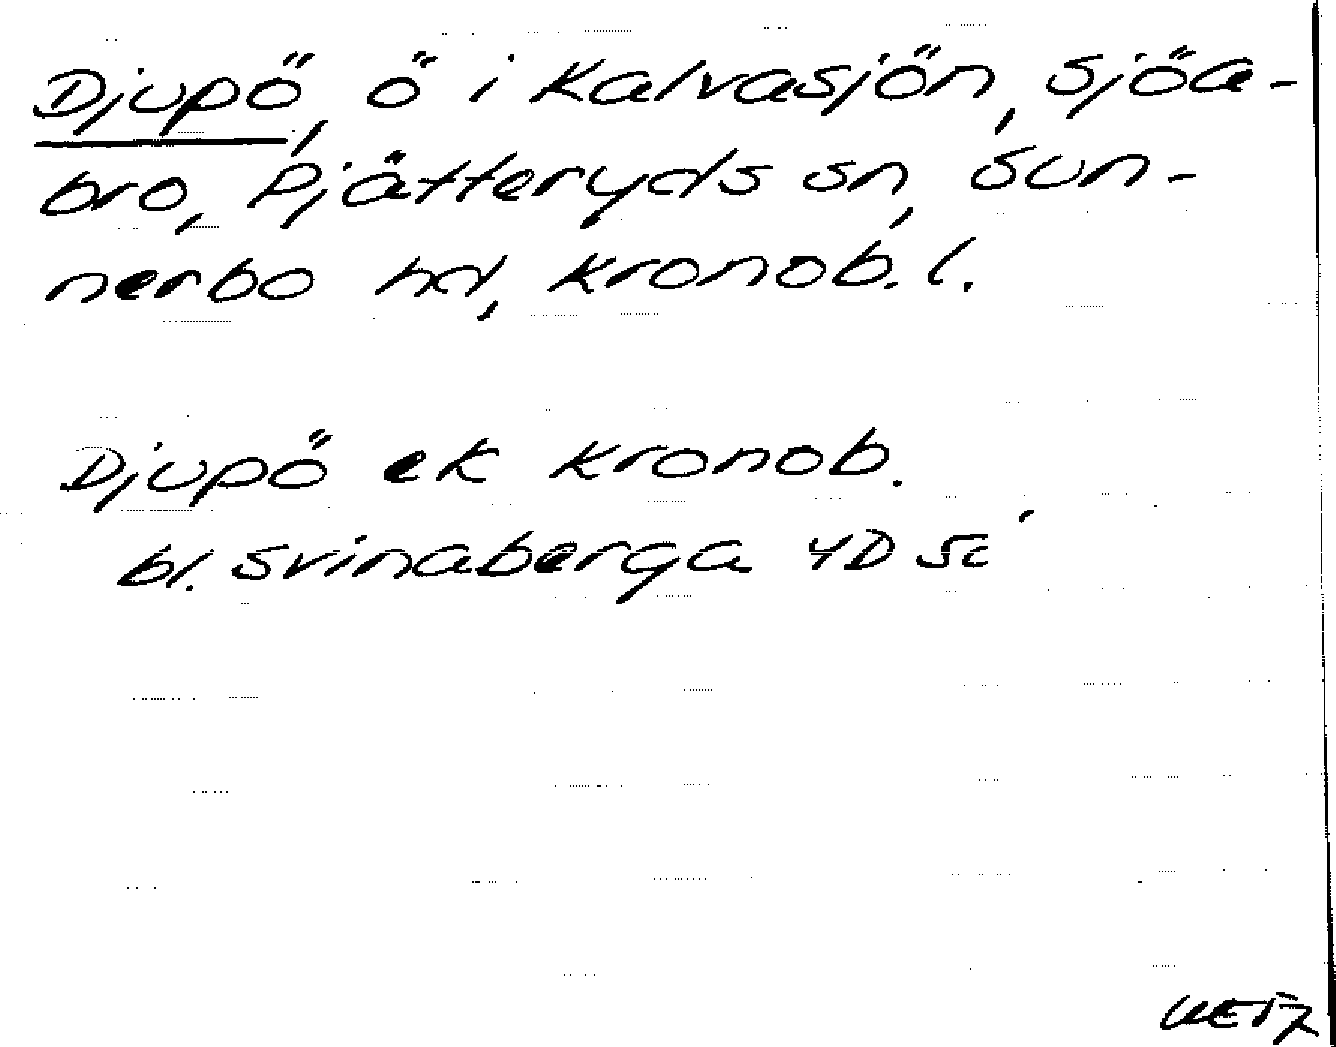 Djupö, ö i Kalvasjön, Sjöa-
bro, Pjätteryds sn, Sun-
nerbo hd, Kronob. l.
Djupö ek Kronob.
bl. Svinaberga 4D 5c